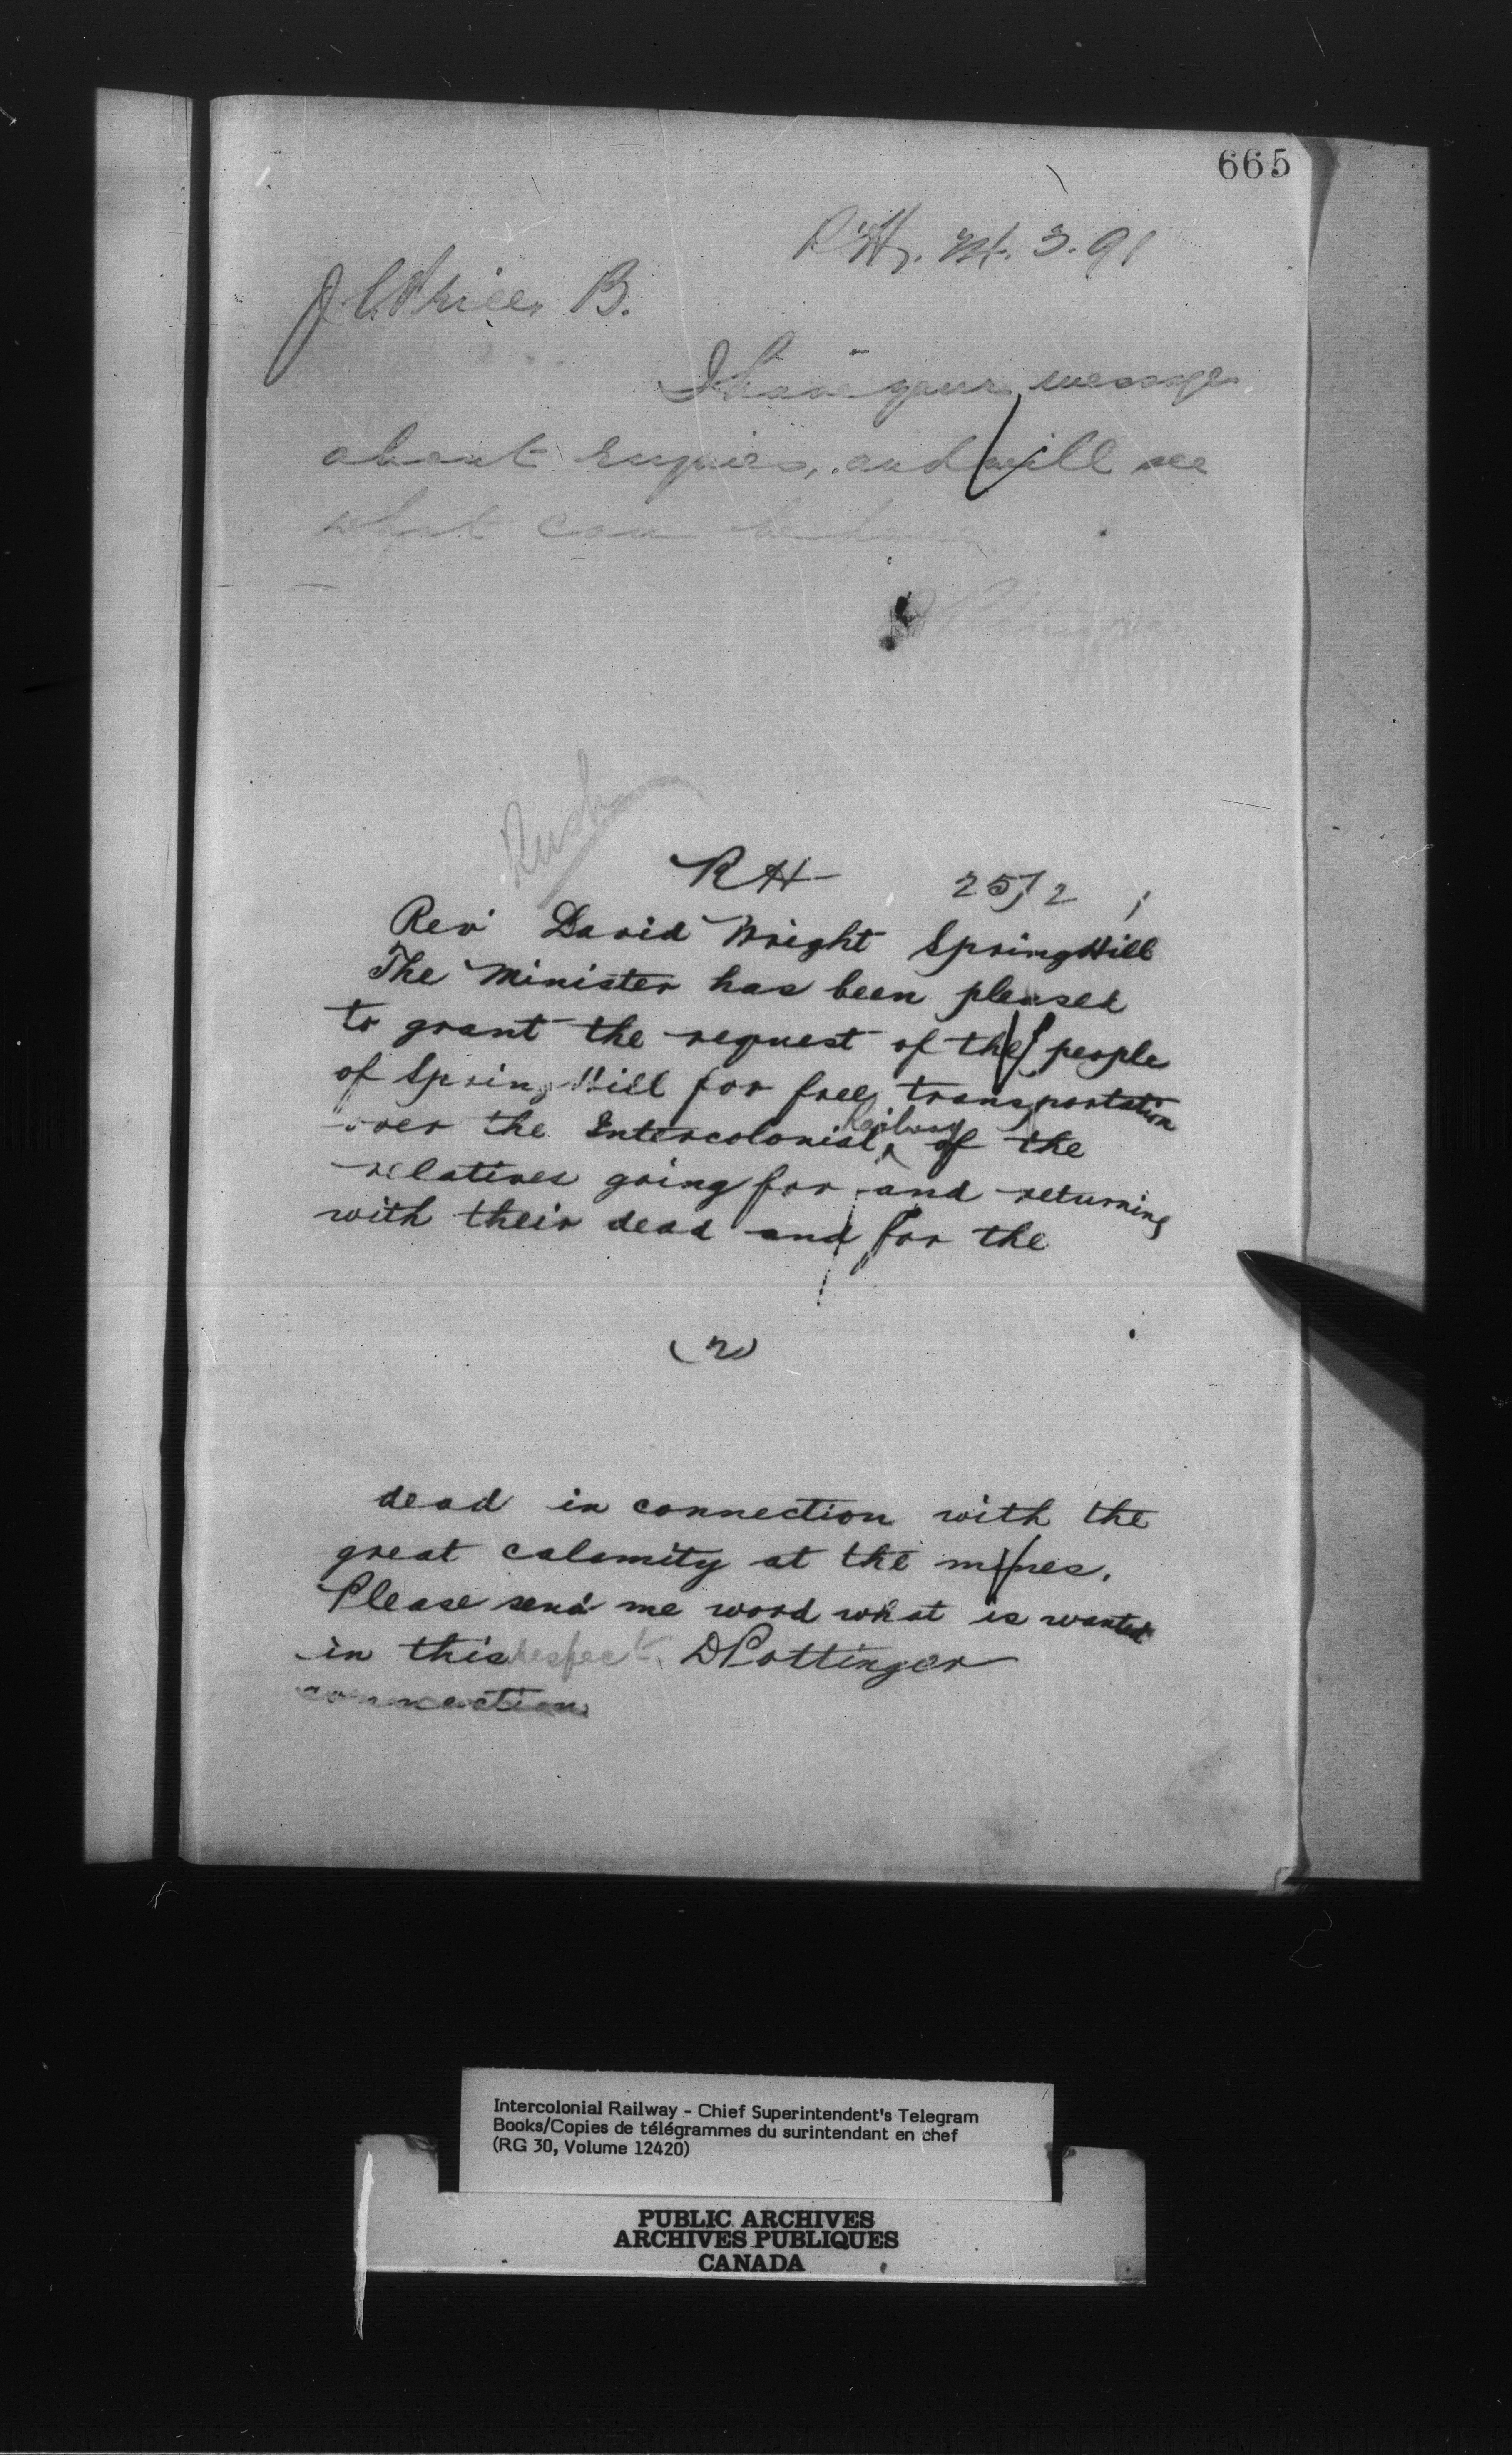 665
R'H,. M. 3. 91
J. C. Price, B.
I have your message
about engines, and will see
what can be done
D Pottinger
Rush
RH 25/2
Rev David Wright SpringHill
The Minister has been pleased
to grant the request of the people
of Spring Hill for free transportation
over the Intercolonial Railway of the
relatives going for and returning
with their dead and for the
(2)
dead in connection with the
great calamity at the mines.
Please send me word what is wanted
in this respect. D Pottinger
connection
Intercolonial Railway - Chief Superintendent's Telegram
Books/Copies de télégrammes du surintendant en chef
(RG 30, Volume 12420)
PUBLIC ARCHIVES
ARCHIVES PUBLIQUES
CANADA